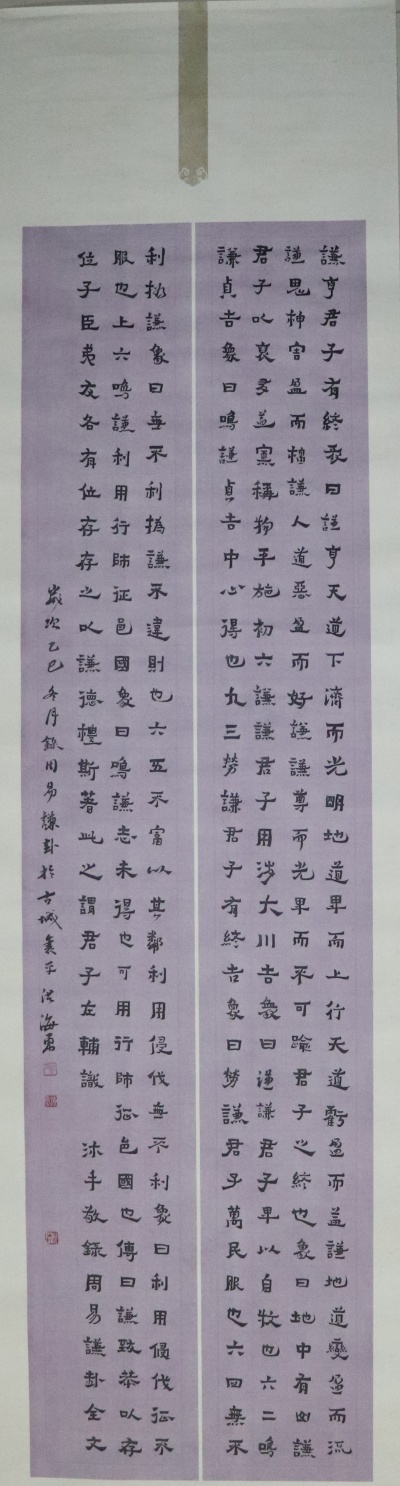 謙亨君子有終彖曰謙亨天道下濟而光明地道卑而上行天道虧盈而益謙地道變盈而流
謙鬼神害盈而福謙人道惡盈而好謙謙尊而光卑而不可踰君子之終也象曰地中有山謙
君子以裒多益寡稱物平施初六謙謙君子用涉大川吉象曰謙謙君子卑以自牧也六二鳴
謙貞吉象曰鳴謙貞吉中心得也九三勞謙君子有終吉象曰勞謙君子萬民服也六四無不
利撝謙象曰無不利撝謙不違則也六五不富以其鄰利用侵伐無不利象曰利用侵伐征不
服也上六鳴謙利用行師征邑國象曰鳴謙志未得也可用行師征邑國也傳曰謙致恭以存
位子臣夷友各有位存存之以謙德禮斯著此之謂君子左輔識 沐手敬錄周易謙卦全文
歲次乙巳冬月錄周易謙卦於古城襄平洪海勇